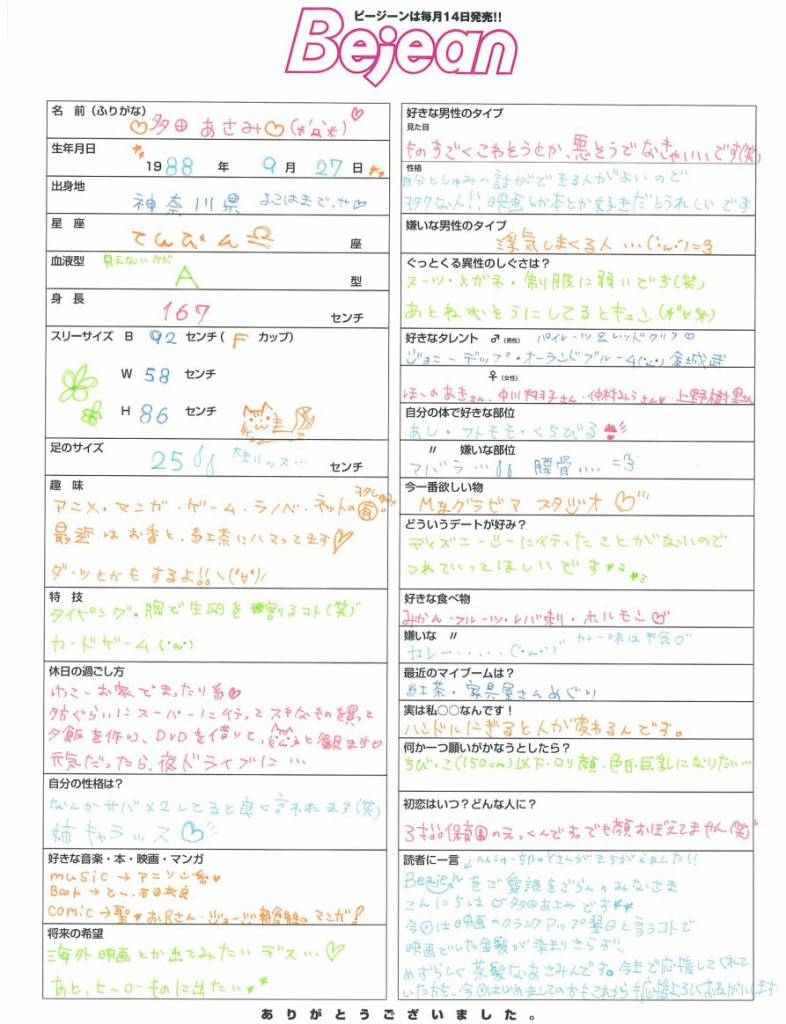 ビージーンは毎月14日発売!!
Bejean
名 前(ふりがな)
♡多田 あさみ♡(*'д'*)♡
生年月日
1988 年 9 月 27 日
出身地
神奈川県 よこはまでっせ♡
星 座
てんびん♎ 座
血液型 見えないケド
A 型
身 長
167 センチ
スリーサイズ B 92 センチ( F カップ)
W 58 センチ
H 86 センチ
足のサイズ
25 センチ
趣 味
アニメ・マンガ・ゲーム・ラノベ・ネットの
最近はお香と、紅茶にハマってます♡
ダーツとかもするよ!!\(°∀°)/
特 技
タイピング・胸で生卵を割るコト(笑)
カードゲーム('ω')
休日の過ごし方
けっこーお家でまったり系♥
夕方ぐらいにスーパーに行ってスキなものを買って
夕飯を作り、DVDを借りて、と観ます♡
元気だったら、夜ドライブに…
自分の性格は?
なんかサバサバしてると良く言われます(笑)
姉キャラッス♡
好きな音楽・本・映画・マンガ
music→アニソン系♥
Book→
comic→聖☆お兄さん・ジョージ朝倉のマンガ!
将来の希望
海外映画とか出てみたいデス…♡
あと、ヒーローものに出たい
好きな男性のタイプ
見た目
ものすごくこわそうとか、悪そうでなきゃいいです(笑)
性格
自分としゅみの話ができる人がよいので
ヲタクな人!!映画とか本とか好きだとうれしいです
嫌いな男性のタイプ
浮気しまくる人…('ω')=3
ぐっとくる異性のしぐさは?
スーツ・メガネ・制服に弱いです(笑)
あとねむそうにしてるとキュン(*°∀°*)
好きなタレント ♂(男性) パイレーツ&レッドクリフ♡
ジョニーデップ・オーランドブルーム('ω') 金城武
♀(女性)
ほしのあきさん・中川翔子さん・仲村みうさん♥ 上野樹里さん
自分の体で好きな部位
あし・フトモモ・くちびる
〃 嫌いな部位
アバラ… 腰骨…=3
今一番欲しい物
Myグラビア スタジオ♡
どういうデートが好み?
ディズニーシーに行ったことがないので
つれていってほしいです
好きな食べ物
みかん・フルーツ・レバ刺・ホルモン♡
嫌いな 〃 カレー味は平気♡
カレー……('ω')
最近のマイブームは?
紅茶・家具屋さんめぐり
実は私○○なんです!
ハンドルにぎると人が変わるんです。
何か一つ願いがかなうとしたら?
ちびっこ(150cm)以下・ロリ顔・色白・巨乳になりたい…
初恋はいつ?どんな人に?
3才 保育園のえっくん でもでも顔おぼえてません(笑)
読者に一言
Bejeanをご愛読をごらんのみなさま
こんにちは♡多田あさみです
今回は映画のクランクアップ翌日と言うコトで
映画でした金髪が染まりきらず、
めずらしく茶髪なあさみんです。今まで応援してくれて
いた方も、今回はじめましての方もこれからも応援よろしくおねがいします
ありがとうございました。